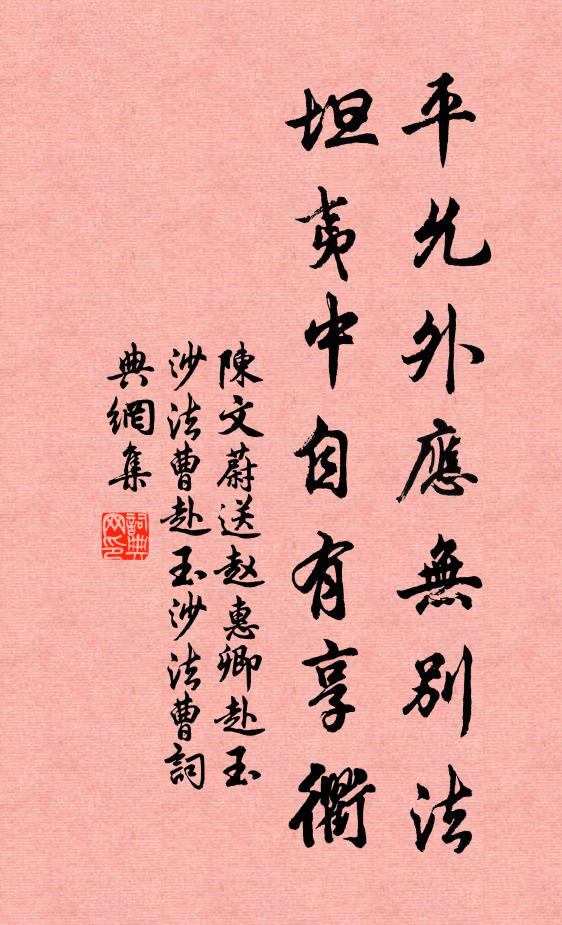 平允外應無別法
坦夷中自有享衢
陳文蔚送赵惠卿赴玉
沙法曹赴玉沙法曹詞
典網集
詞典網印